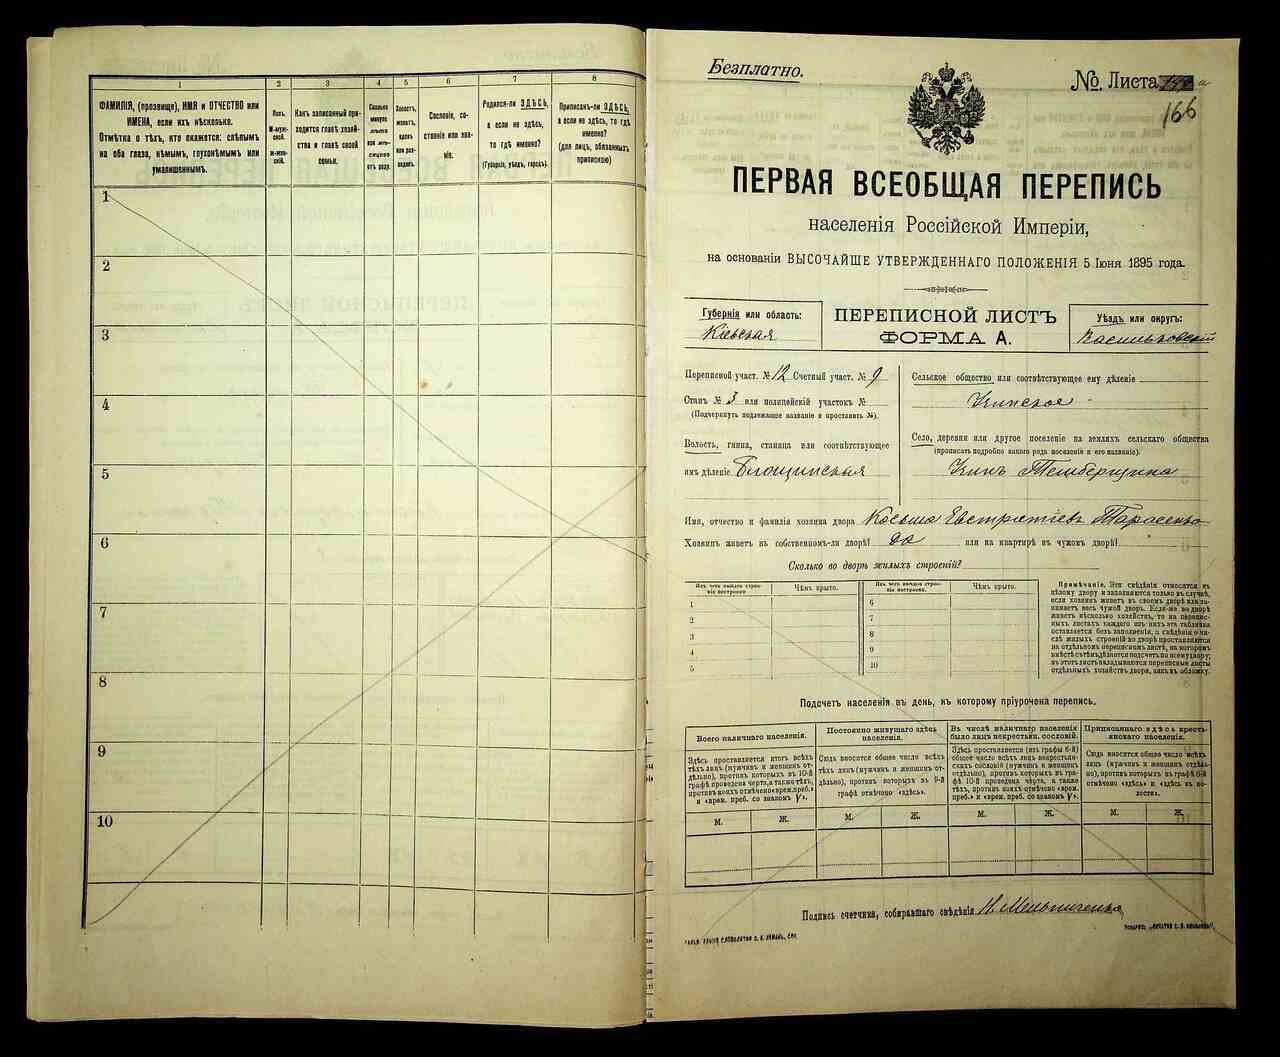 1 2 3 4 5 6 7 8
ФАМИЛІЯ, (прозвище), ИМЯ и ОТЧЕСТВО или
ИМЕНА, если ихъ нѣсколько.
Отмѣтка о тѣхъ, кто окажется: слѣпымъ
на оба глаза, нѣмымъ, глухонѣмымъ или
умалишеннымъ.
Полъ.
М-муж-
ской.
Ж-жен-
скій.
Какъ записанный при-
ходится главѣ хозяй-
ства и главѣ своей
семьи.
Сколько
минуло
лѣтъ
или мѣ-
сяцевъ
отъ роду.
Холостъ,
женатъ,
вдовъ
или раз-
веденъ.
Сословіе, со-
стояніе или зва-
ніе.
Родился-ли ЗДѢСЬ,
а если не здѣсь,
то гдѣ именно?
(Губернія, уѣздъ, городъ).
Приписанъ-ли ЗДѢСЬ,
а если не здѣсь, то гдѣ
именно?
(для лицъ, обязанныхъ
припискою)
1
2
3
4
5
6
7
8
9
10
Безплатно.
№. Листа
166
ПЕРВАЯ ВСЕОБЩАЯ ПЕРЕПИСЬ
населенія Россійской Имперіи,
на основаніи ВЫСОЧАЙШЕ УТВЕРЖДЕННАГО ПОЛОЖЕНІЯ 5 Іюня 1895 года.
Губернія или область:
Кіевская
ПЕРЕПИСНОЙ ЛИСТЪ
ФОРМА А.
Уѣздъ или округъ:
Васильковскій
Переписной участ. № 12 Счетный участ. № 9
Станъ № 3 или полицейскій участокъ №
(Подчеркнуть подлежащее названіе и проставить №).
Волость, гмина, станица или соотвѣтствующее
имъ дѣленіе
Сельское общество или соотвѣтствующее ему дѣленіе
Село, деревня или другое поселеніе на земляхъ сельскаго общества
(прописать подробно какого рода поселеніе и его названіе).
Имя, отчество и фамилія хозяина двора Косьма Евстратіевъ Тарасенко
Хозяинъ живетъ въ собственномъ-ли дворѣ? да или на квартирѣ въ чужомъ дворѣ?
Сколько во дворѣ жилыхъ строеній?
Изъ чего каждое строе-
ніе построено
Чѣмъ крыто.
Изъ чего каждое строе-
ніе построено.
Чѣмъ крыто.
1
2
3
4
5
6
7
8
9
10
Примѣчаніе. Эти свѣдѣнія относятся къ
цѣлому двору и заполняются только въ случаѣ,
если хозяинъ живетъ въ своемъ дворѣ или за-
нимаетъ весь чужой дворъ. Если-же во дворѣ
живетъ нѣсколько хозяйствъ, то на перепис-
ныхъ листахъ каждаго изъ нихъ эта таблица
оставляется безъ заполненія, а свѣдѣнія о чи-
слѣ жилыхъ строеній во дворѣ проставляются
на отдѣльномъ переписномъ листѣ, на которомъ
вмѣстѣ съ тѣмъ дѣлается подсчетъ по всему двору;
въ этотъ листъ вкладываются переписные листы
отдѣльныхъ хозяйствъ двора, какъ въ обложку.
Подсчетъ населенія въ день, къ которому пріурочена перепись.
Всего наличнаго населенія.
Постоянно живущаго здѣсь
населенія.
Въ числѣ наличнаго населенія
было лицъ некрестьян. сословій.
Приписаннаго здѣсь кресть-
янскаго населенія.
Здѣсь проставляется итогъ всѣхъ
тѣхъ лицъ (мужчинъ и женщинъ от-
дѣльно), противъ которыхъ въ 10-й
графѣ проведена черта, а также тѣхъ,
противъ коихъ отмѣчено «врем. преб.»
и «врем. преб. со знакомъ V».
Сюда вносится общее число всѣхъ
тѣхъ лицъ (мужчинъ и женщинъ от-
дѣльно), противъ которыхъ въ 9-й
графѣ отмѣчено «здѣсь».
Здѣсь проставляется (изъ графы 6-й)
общее число всѣхъ лицъ некрестьян-
скихъ сословій (мужчинъ и женщинъ
отдѣльно), противъ которыхъ въ гра-
фѣ 10-й проведена черта, а также
тѣхъ, противъ коихъ отмѣчено «врем.
преб.» и «врем. преб. со знакомъ V».
Сюда вносится общее число всѣхъ
лицъ (мужчинъ и женщинъ отдѣль-
но), противъ которыхъ въ графѣ 8-й
отмѣчено «здѣсь» и «здѣсь въ во-
лости».
М. Ж. М. Ж. М. Ж. М. Ж.
Подпись счетчика, собиравшаго свѣдѣнія Н. Мельниченко